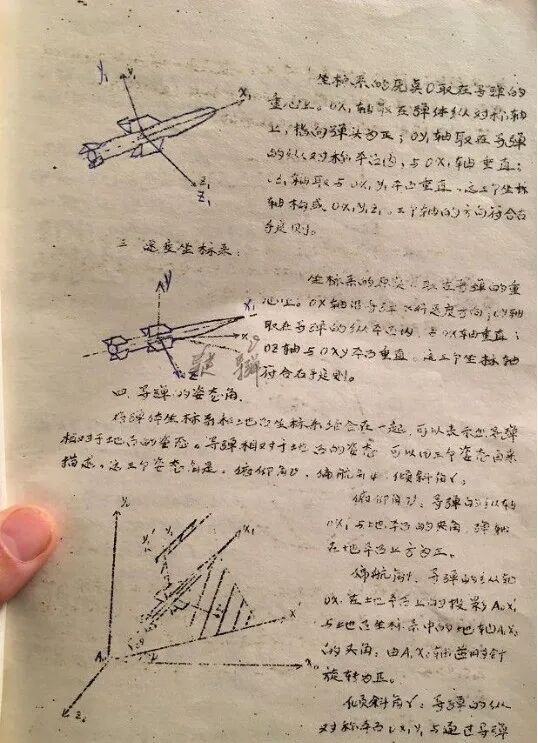 y₁
x₁
z₁
Z₁
坐标系的原点O取在导弹的
重心上。OX₁轴取在弹体纵对称轴
上，指向弹头为正；OY₁轴取在导弹
的纵对称平面内，与OX₁轴垂直；
OZ₁轴取与OX₁Y₁平面垂直。这三个坐标
轴构成OX₁Y₁Z₁。三个轴的方向符合右
手定则。
三 速度坐标系：
y
X₁
x
z
坐标系的原点 取在导弹的重
心上。OX轴沿导弹 速度方向；OY轴
取在导弹的纵平面内 与OX轴垂直；
OZ轴与OXY平面垂直。这三个坐标轴
符合右手定则。
四 导弹的姿态角
将弹体坐标系和地面坐标系结合在一起，可以表示出导弹
相对于地面的姿态。导弹相对于地面的姿态 可以由三个姿态角来
描述。这三个姿态角是：俯仰角υ，偏航角ψ，倾斜角γ；
俯仰角υ：导弹的纵轴
OX₁与地平面的夹角 弹轴
在地平面上方为正。
偏航角ψ：导弹的纵轴
OX₁在地平面上的投影A₀X′
与地面坐标系中的地轴A₀X₀
的夹角，由A₀X₀轴逆时针
旋转为正。
倾斜角γ：导弹的纵
对称平面OX₁Y₁与通过导弹
y₀
X₁
X
A₀
X₀
Z₀